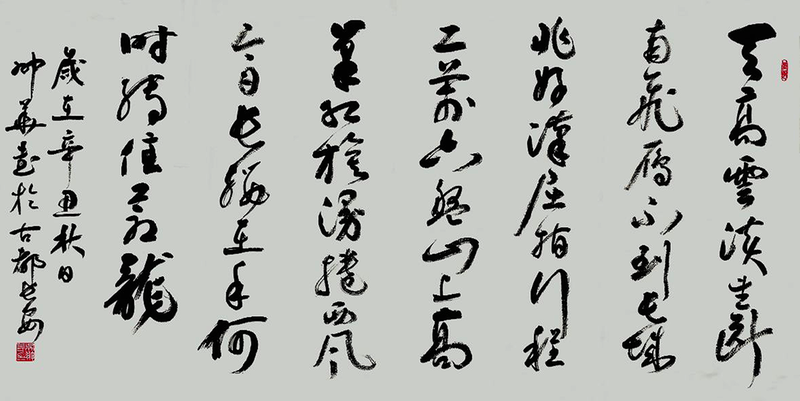 天高雲淡望断
南飛雁不到長城
非好漢屈指行程
二萬六盤山上高
峯紅旗漫捲西風
今日長纓在手何
时縛住蒼龍
歲在辛丑秋日
華書於古都長安